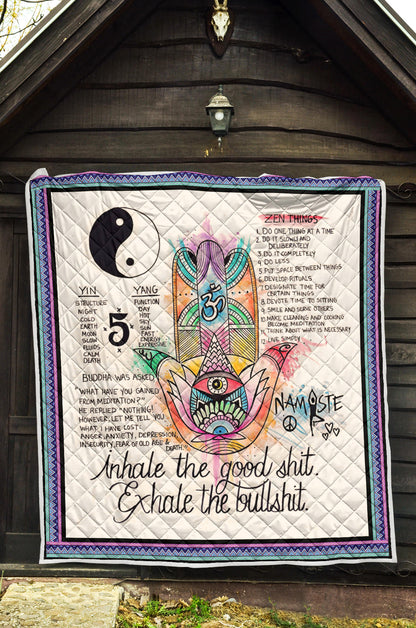 ZEN THINGS
1. DO ONE THING AT A TIME
2. DO IT SLOWLY AND
DELIBERATELY
3. DO IT COMPLETELY
4. DO LESS
5. PUT SPACE BETWEEN THINGS
6. DEVELOP RITUALS
7. DESIGNATE TIME FOR
CERTAIN THINGS
8. DEVOTE TIME TO SITTING
9. SMILE AND SERVE OTHERS
10. MAKE CLEANING AND COOKING
BECOME MEDITATION
11. THINK ABOUT WHAT IS NECESSARY
12. LIVE SIMPLY
YIN
STRUCTURE
NIGHT
COLD
EARTH
MOON
SLOW
FLUIDS
CALM
DEATH
YANG
FUNCTION
DAY
HOT
SKY
SUN
FAST
ENERGY
EXPRESSIVE
ॐ
BUDDHA WAS ASKED
WHAT HAVE YOU GAINED
FROM MEDITATION?
HE REPLIED "NOTHING!
HOWEVER, LET ME TELL YOU
WHAT I HAVE LOST:
ANGER, ANXIETY, DEPRESSION,
INSECURITY, FEAR OF OLD AGE &
DEATH
NAMASTE
Inhale the good shit.
Exhale the bullshit.